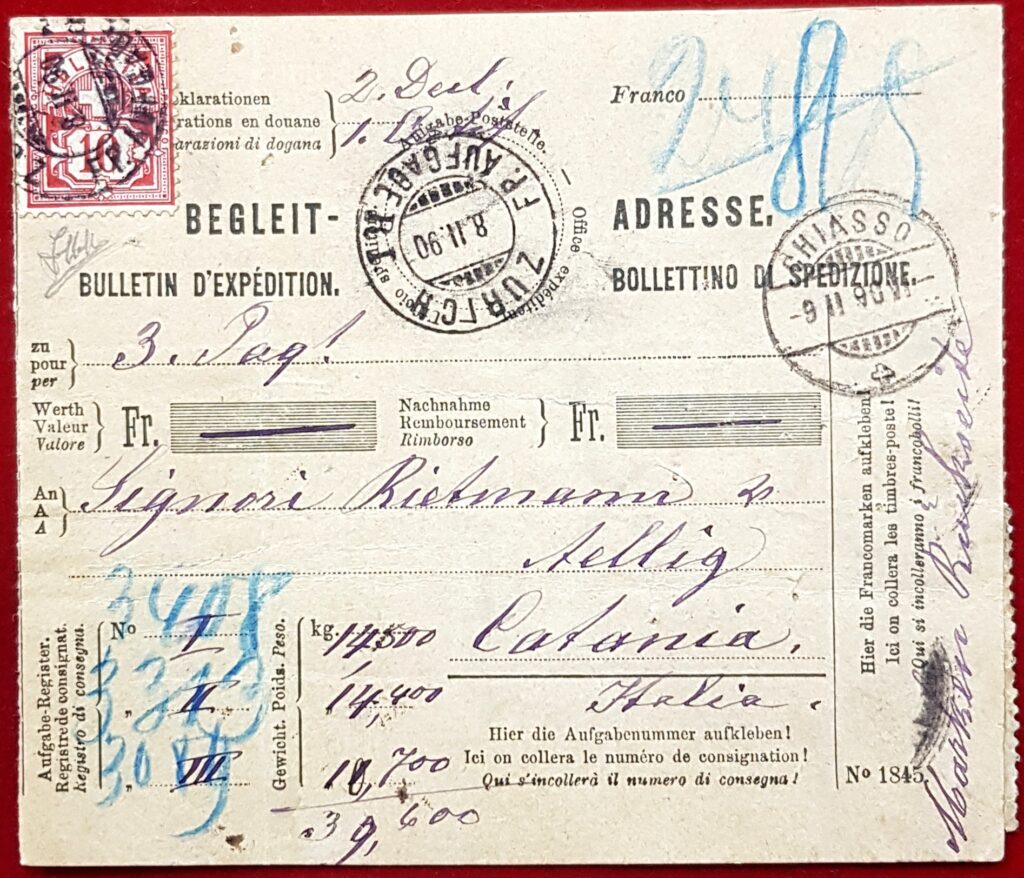 10
klarationen
rations en douane
arazioni di dogana
2. Decl.
Franco
Aufgabe-Poststelle.
Office expéditeur
ZÜRICH
FP. AUFGABE
8.II.90
BEGLEIT-
ADRESSE.
BULLETIN D'EXPÉDITION.
BOLLETTINO DI SPEDIZIONE.
CHIASSO
zu
pour
per
3.
Werth
Valeur
Valore
Fr.
Nachnahme
Remboursement
Rimborso
Fr.
An
A
A
Signori Rietmann &
Aellig
Catania.
Italia.
Aufgabe-Register.
Registre de consignat.
Registro di consegna.
No I
„ II
„ III
Gewicht. Poids. Peso.
kg. 14,500
14,400
10,700
39,600
Hier die Aufgabenummer aufkleben!
Ici on collera le numéro de consignation!
Qui s'incollerà il numero di consegna!
Hier die Francomarken aufkleben!
Ici on collera les timbres-poste!
Qui si incolleranno i francobolli!
No 1845.
Marken Rückseite